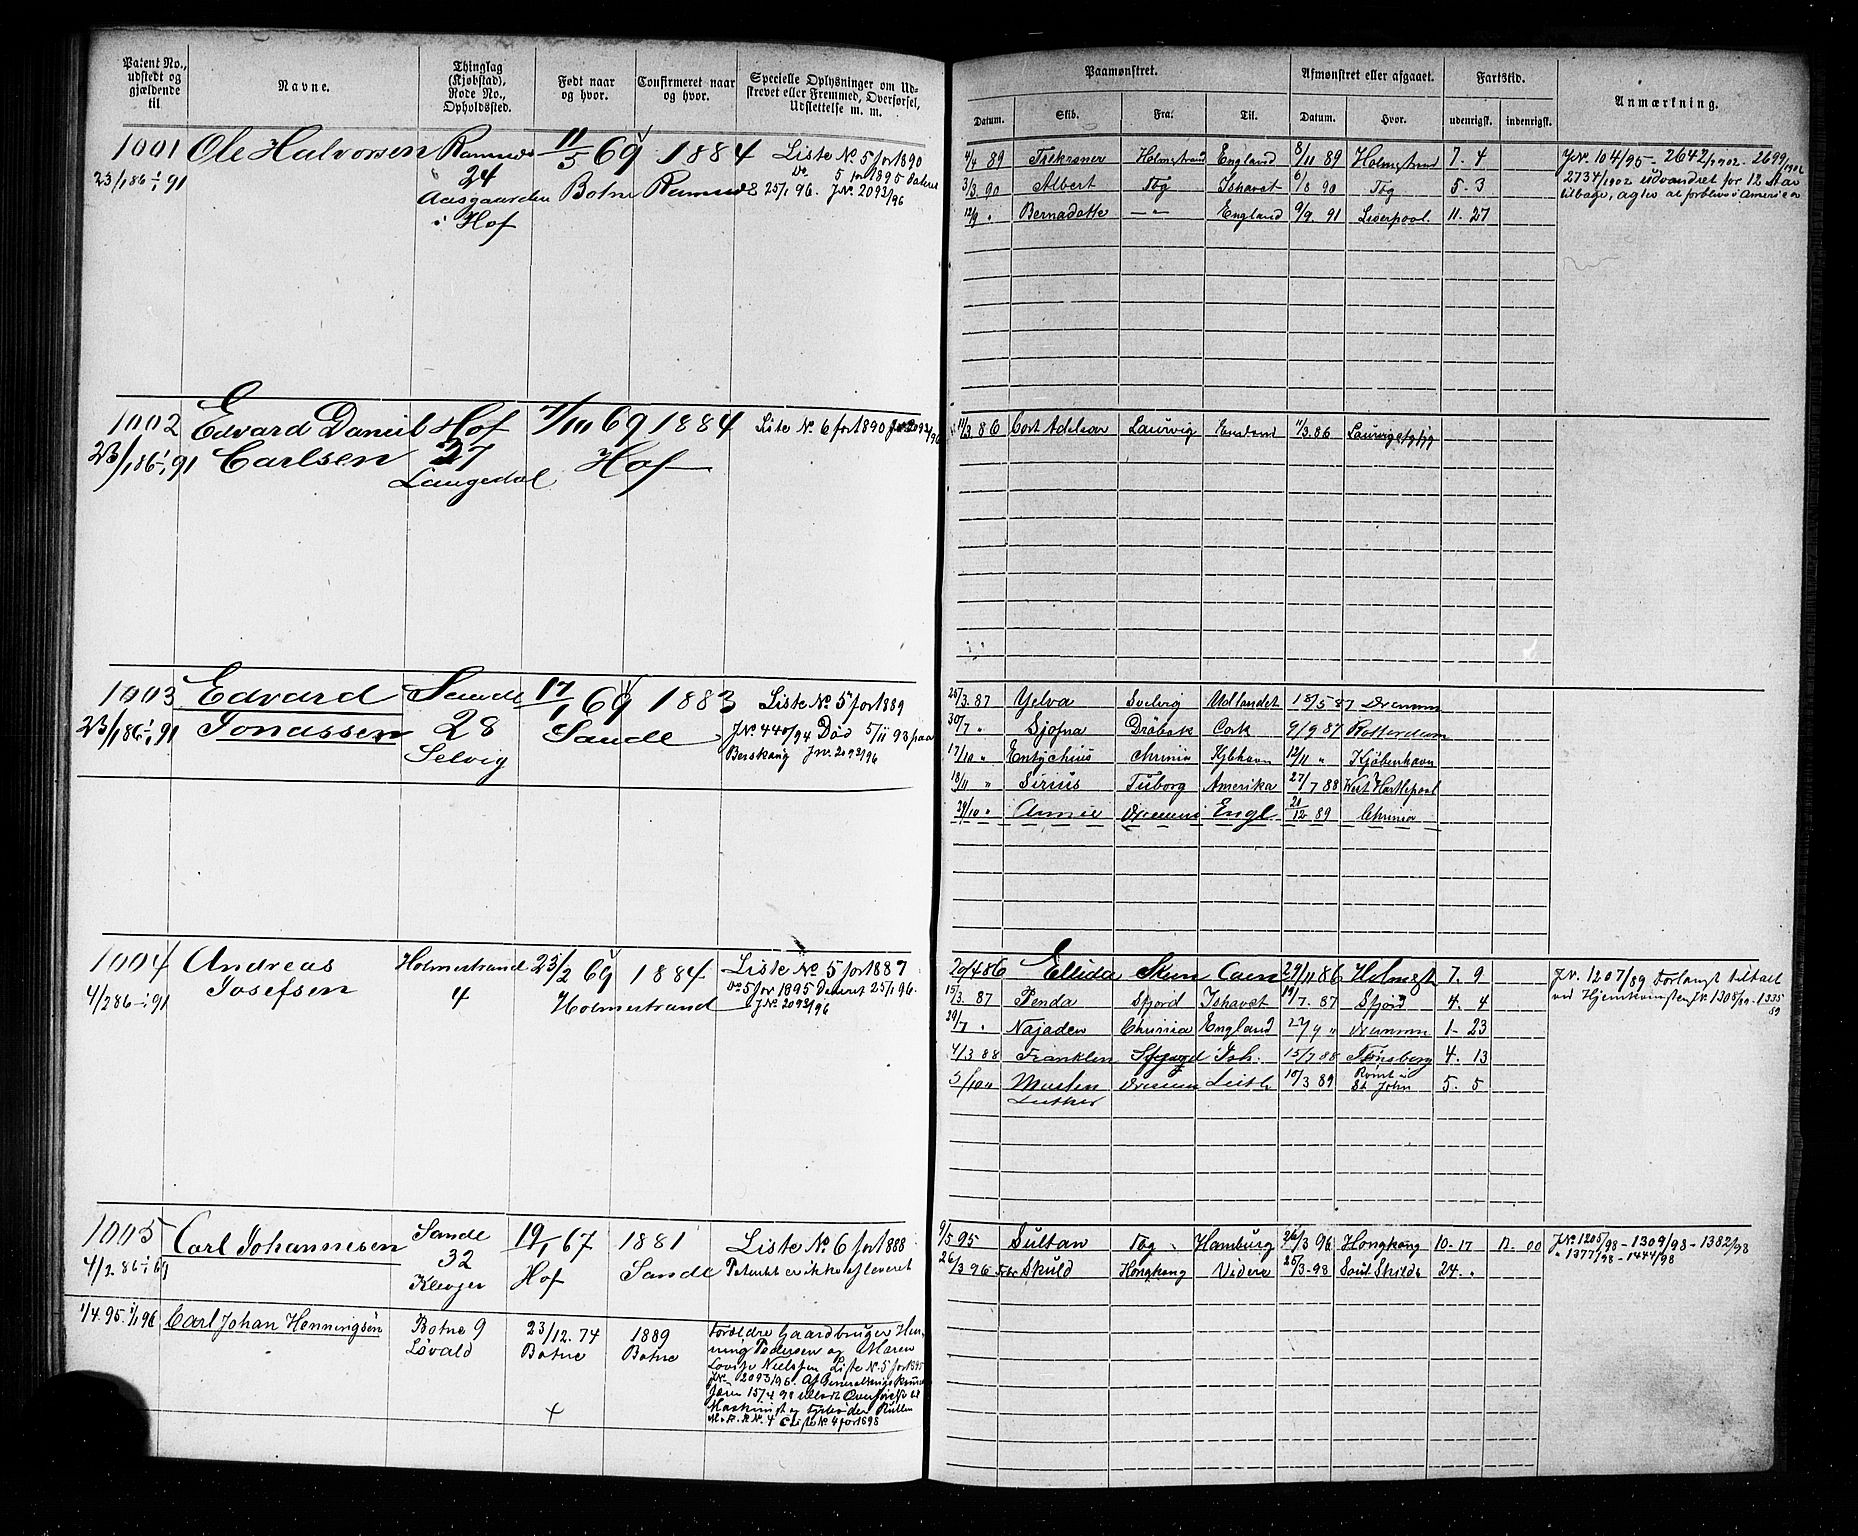 Patent No., udstedt og gjældende til
Navne.
Thinglag (Kjøbstad), Rode No., Opholdssted.
Født naar og hvor.
Confirmeret naar og hvor.
Specielle Oplysninger om Udskrevet eller Fremmed, Overførsel, Udslettelse m. m.
Paamønstret.
Afmønstret eller afgaaet.
Fartstid.
Anmærkning.
Datum.
Skib.
Fra:
Til.
Datum.
Hvor.
udenrigsk.
indenrigsk.
1001 Ole Halvorsen Ramnes 11/5 69 1884 Liste No 5 for 1890
23/1 86 1/1 91 24 Botne Ramnes Do 5 for 1895 Pateret
Aasgaarden 25/1 96. J.No. 2093/96
i Hof
4/4 89 Trekroner Holmestrand England 8/11 89 Holmestrand 7. 4
3/3 90 Albert Tbg Ishavet 6/8 90 Tbg 5. 3
12/9 " Bernadette —"— England 9/9. 91 Liverpool. 11. 27
J.No. 104/95 - 2642/1902 - 2699/1902
2734/1902 udvandret for 12 Aar
tilbage, agter at forblive i Amerika
1002 Edvard Daniel Hof 7/10 69 1884 Liste No 6 for 1890 2093/96
23/1 86 1/1 91 Carlsen 27 Hof
Langedal
11/3. 86 Cort Adelaer Laurvig 11/3. 86
1003 Edvard Sande 17/1 69 1883 Liste No 5 for 1889
23/1 86 1/1 91 Jonassen 28 Sande J.No. 440/94 Død 5/11 93 paa
Selvig J.No. 2093/96
25/3. 87 Yelva Svelvig Udlandet 18/5 87 Drammen
30/7 " Sjofna Drøbak Cork 9/9 87 Rotterdam
17/10 " Entychius Chrinia Kjbhavn 12/11 " Kjøbenhavn
18/11 " Sirius Tuborg Amerika 27/7 88 West Hartlepool
29/10 " Annie Drammen Engl 21/12 89 Chrinia
1004 Andreas Holmestrand 23/2 69 1884 Liste No 5 for 1887
4/2 86 1/1 91 Josefsen 4 Holmestrand Do 5 for 1895 Pateret 25/1 96.
J.No. 2093/96
20/4 86 Ellida Skien Caen 29/11 86 Holmestr 7. 9
15/3. 87 Penda Sfjord Ishavet 19/7. 87 Sfjord 4. 4
29/7 " Najaden Chrinia England 27/9 " Drammen 1 - 23
4/3 88 Franklin Ish. 15/7 88 Tønsberg 4. 13
5/10 " Morten Drammen Leith 10/3 89 Rømt i St. John 5. 5
Luther
J.No. 1207/89 Forlangt tiltalt
ved Hjemkomsten J.No. 1308/89 - 1335/89
1005 Carl Johannesen Sande 19/1 67 1881 Liste No 6 for 1888
4/2. 86 32 Hof Sande Patentet er ikke afleveret
Klevjer
9/5 95 Sultan Tbg Hamburg 26/3 96 Hongkong 10. 17 12. 00
26/3 96 Skuld Hongkong Videre 25/3 98 South Shilds 24. "
J.No. 1205/98 - 1309/98 - 1382/98
" 1377/98 - 1444/98
1/4. 95. 1/1 96 Carl Johan Henningsen Botne 9 23/12. 74 1889
Løvald Botne Botne
Forældre Gaardbruger Hen-
ning Pedersen og Maren
Lovise Nielsen Liste No 5 for 1895
J.No. 2093/96.
Liste No 4 for 1898